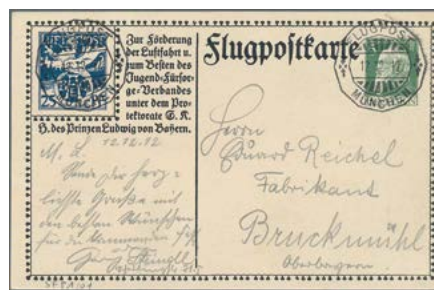 FLUGPOST
MÜNCHEN
25
Zur Förderung
der Luftfahrt u.
zum Besten des
Jugend-Fürsor-
ge-Verbandes
unter dem Pro-
tektorate S. K.
H. des Prinzen Ludwig von Bayern.
Flugpostkarte
FLUGPOST
MÜNCHEN
12.12.12
M. L.
Sende die herz-
lichste Grüße mit
den besten Wünschen
für die
Herrn
Eduard Reichel
Fabrikant
Bruckmühl
Oberbayern